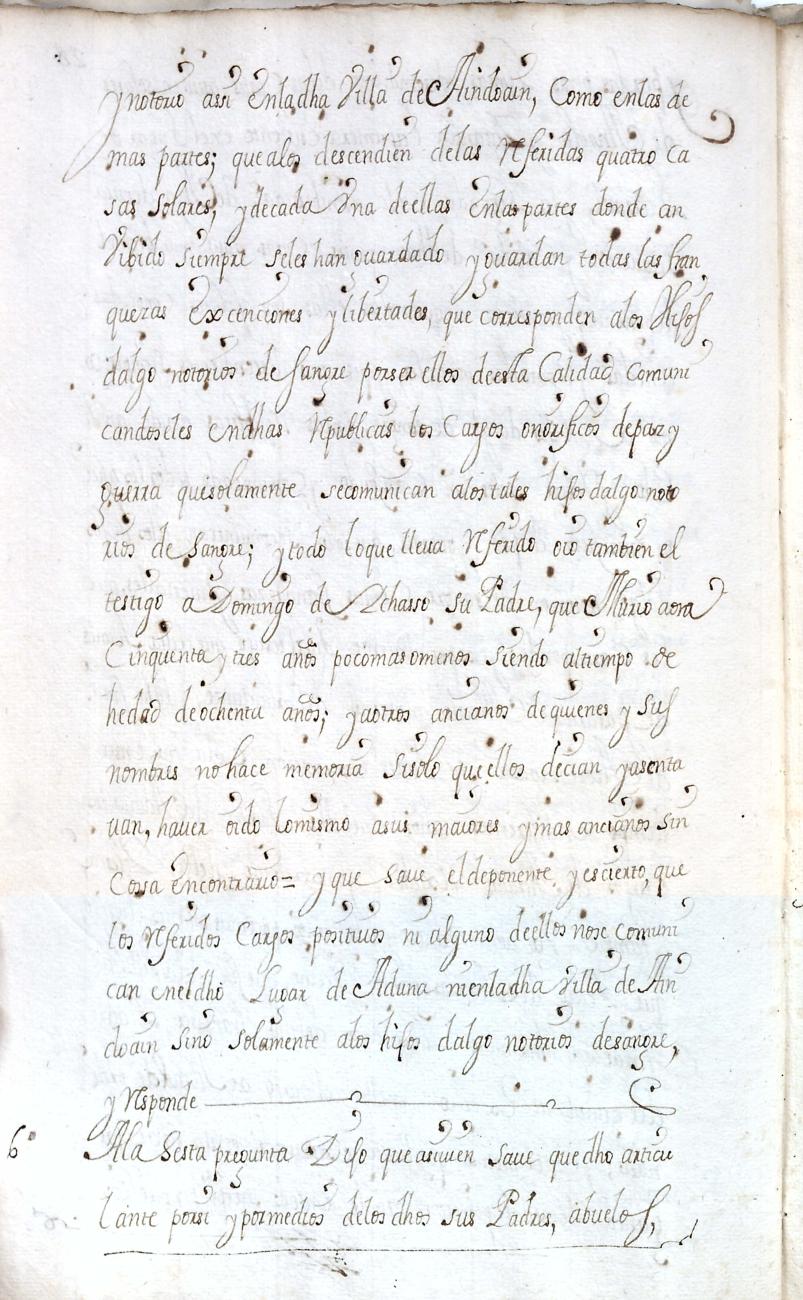 y notorio assi en la dha Villa de Aindoain, Como en las de
mas partes; que a los descendien de las Referidas quatro Ca
sas Solares, y de cada Vna de ellas en las partes donde an
Vibido siempre se les han guardado y guardan todas las fran
quezas Excenciones y libertades, que corresponden a los Hijos
dalgo notorios de Sangre por ser ellos de esta Calidad Comuni
candoseles en dhas Republicas los Cargos onorificos de paz y
guerra qui solamente se comunican a los tales hijos dalgo noto
rios de Sangre; y todo lo que lleva Referido oio tambien el
testigo a Domingo de Echasso su Padre, que Murio aora
Cinquenta y tres años poco mas o menos siendo al tiempo de
hedad de ochenta años; y a otros ancianos de quienes y sus
nombres no hace memoria Si solo que ellos decian y asenta
uan, hauer oido lo mismo a sus maiores y mas ancianos sin
Cossa en contrario = y que saue el deponente y es cierto, que
los Referidos Cargos positivos ni alguno de ellos no se comuni
can en el dho Lugar de Aduna ni en la dha Villa de Ain
doain sino solamente a los hijos dalgo notorios de sangre,
y Responde
6ª A la Sesta pregunta Dijo que asi uien saue que dho articu
lante por si y por medios de los dhos sus Padres, abuelos,